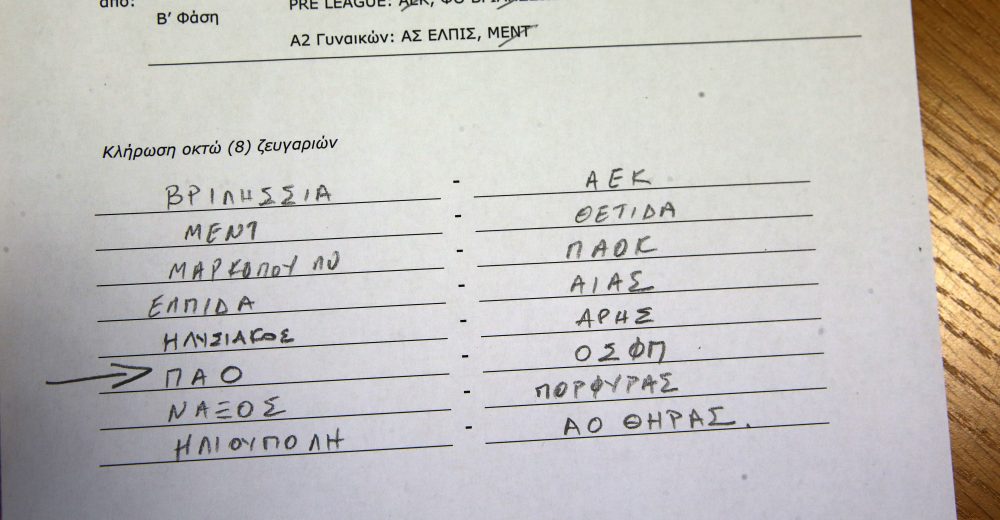 από:
Β' Φάση
PRE LEAGUE: ΑΕΚ, ΦΟ
Α2 Γυναικών: ΑΣ ΕΛΠΙΣ, ΜΕΝΤ
Κλήρωση οκτώ (8) ζευγαριών
ΒΡΙΛΗΣΣΙΑ - ΑΕΚ
ΜΕΝΤ - ΘΕΤΙΔΑ
ΜΑΡΚΟΠΟΥΛΟ - ΠΑΟΚ
ΕΛΠΙΔΑ - ΑΙΑΣ
ΗΛΥΣΙΑΚΟΣ - ΑΡΗΣ
ΠΑΟ - ΟΣΦΠ
ΝΑΞΟΣ - ΠΟΡΦΥΡΑΣ
ΗΛΙΟΥΠΟΛΗ - ΑΟ ΘΗΡΑΣ.